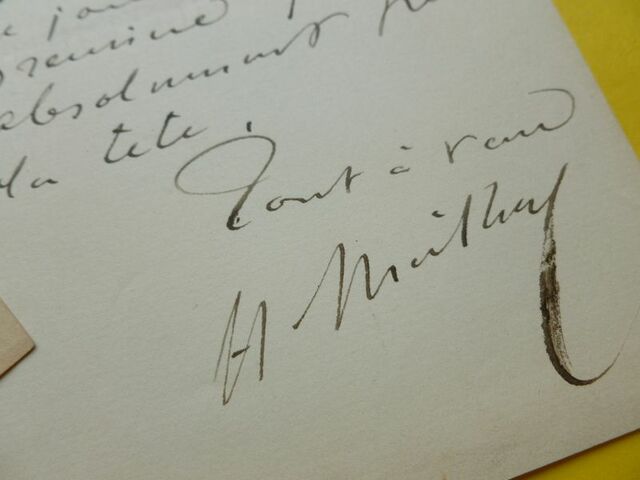 e jou
absolument
la tete.
Tout à vous
H Meilhac